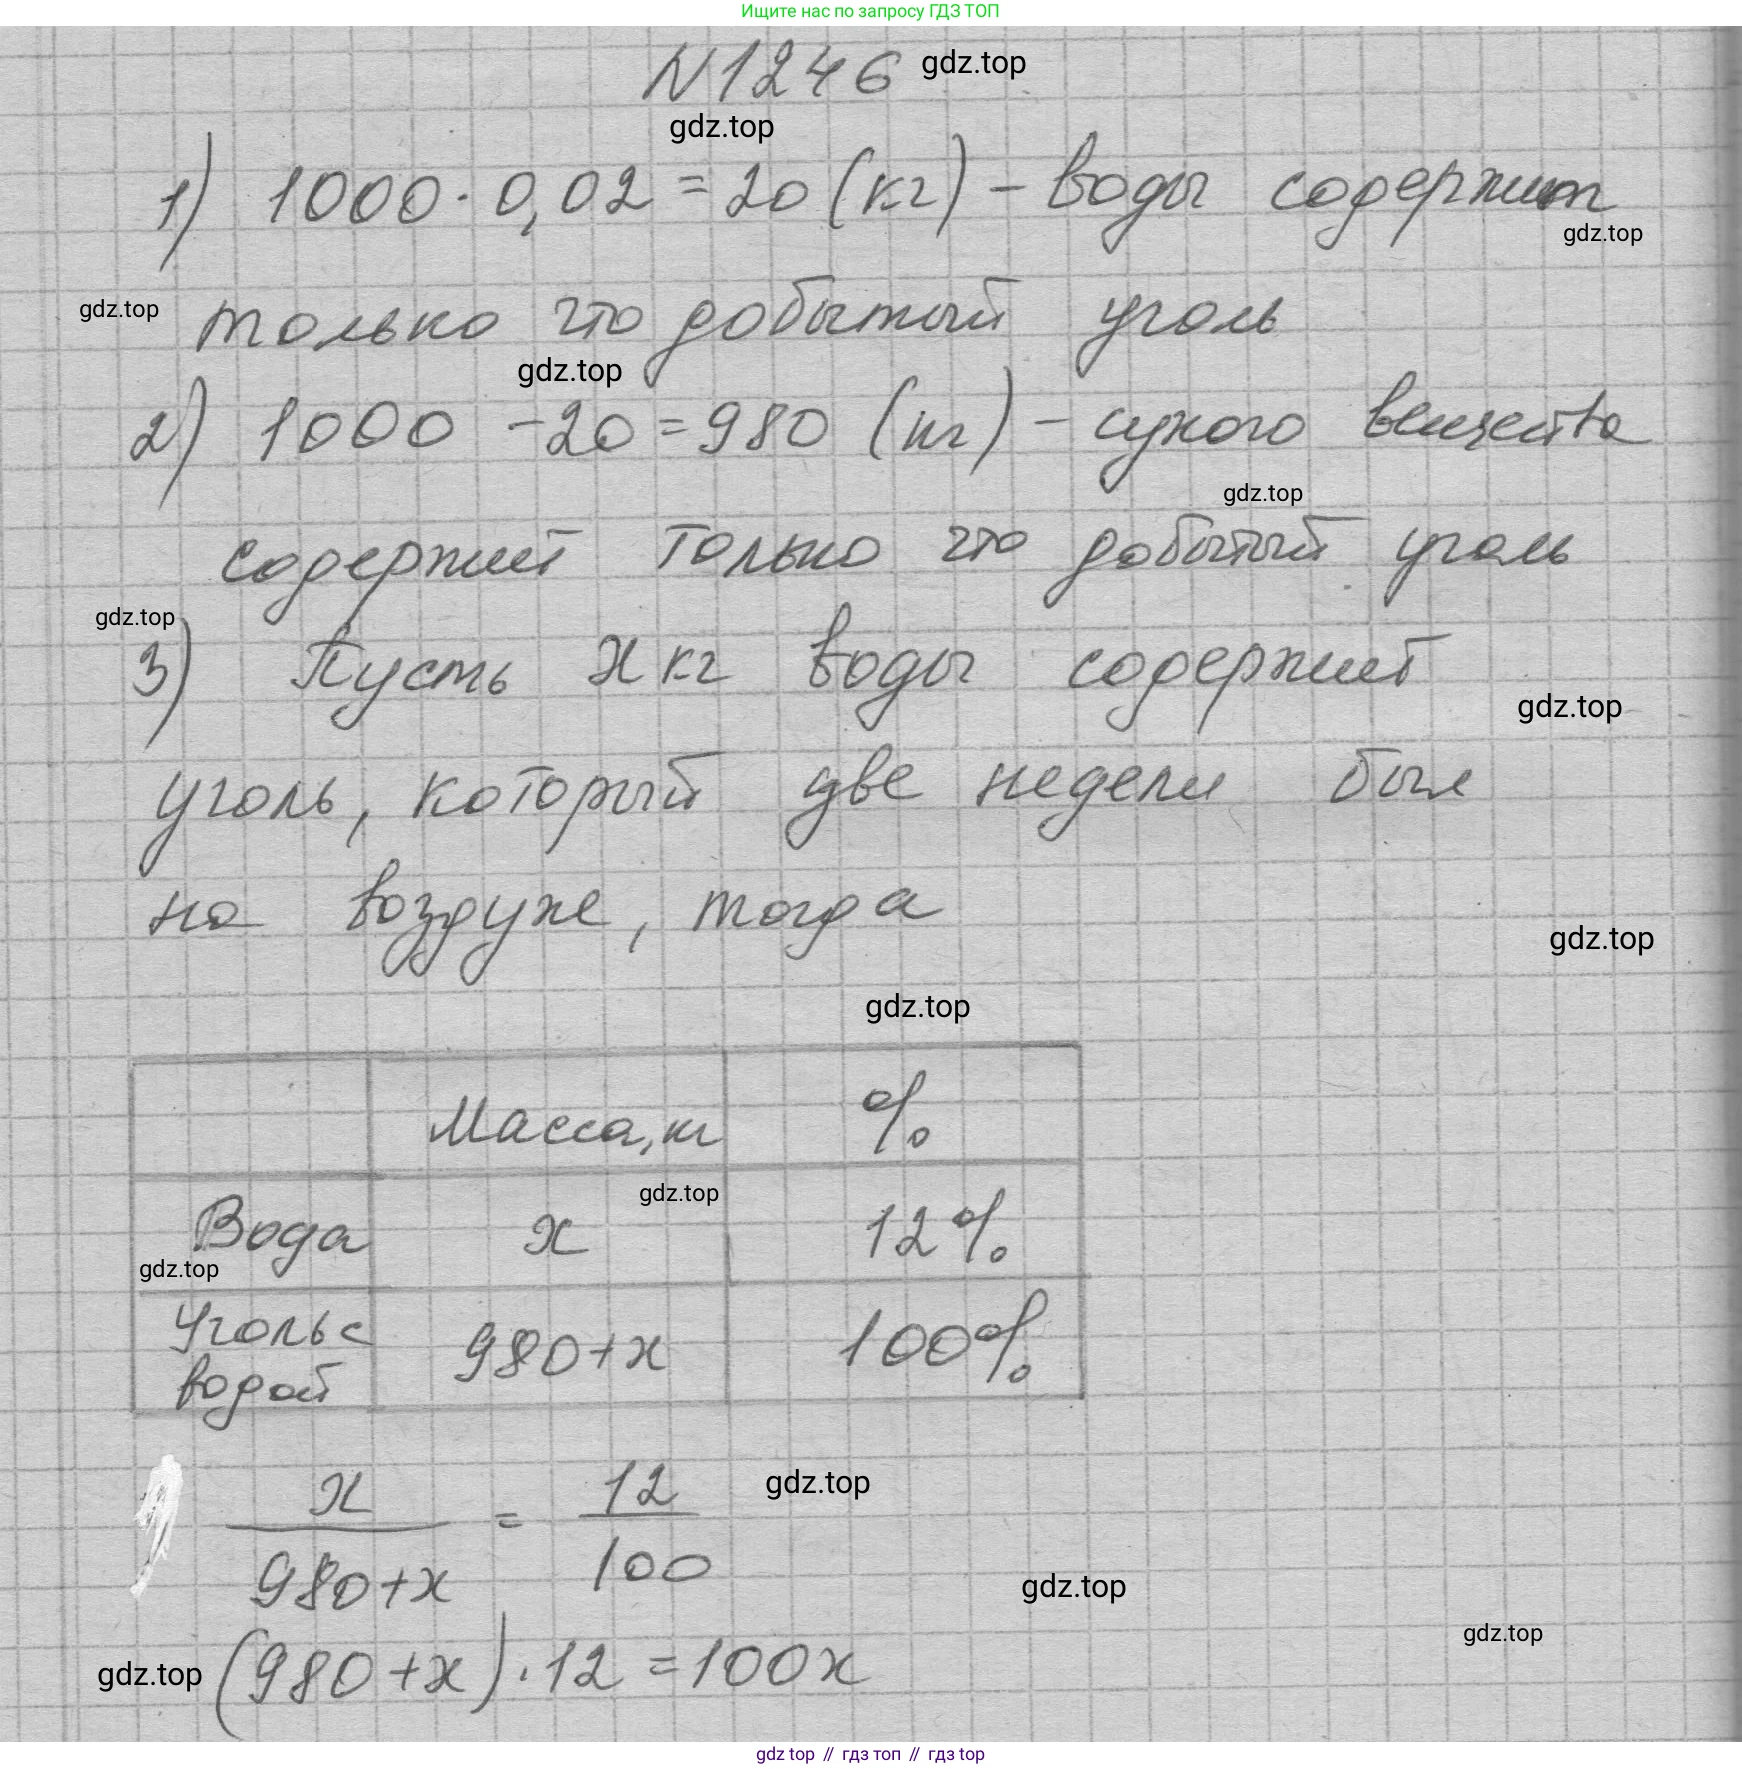 Ищите нас по запросу ГДЗ ТОП
N1246 gdz.top
gdz.top
1) 1000 · 0,02 = 20 (кг) - воды содержит
gdz.top
gdz.top только что добытый уголь
gdz.top
2) 1000 - 20 = 980 (кг) - сухого вещества
gdz.top
содержит только что добытый уголь
gdz.top
3) Пусть x кг воды содержит
gdz.top
уголь, который две недели был
на воздухе, тогда
gdz.top
gdz.top
Масса, кг %
gdz.top
Вода x 12%
gdz.top
Уголь с водой 980+x 100%
x/980+x = 12/100 gdz.top
gdz.top
gdz.top
gdz.top (980+x)·12=100x
gdz top // гдз топ // гдз top